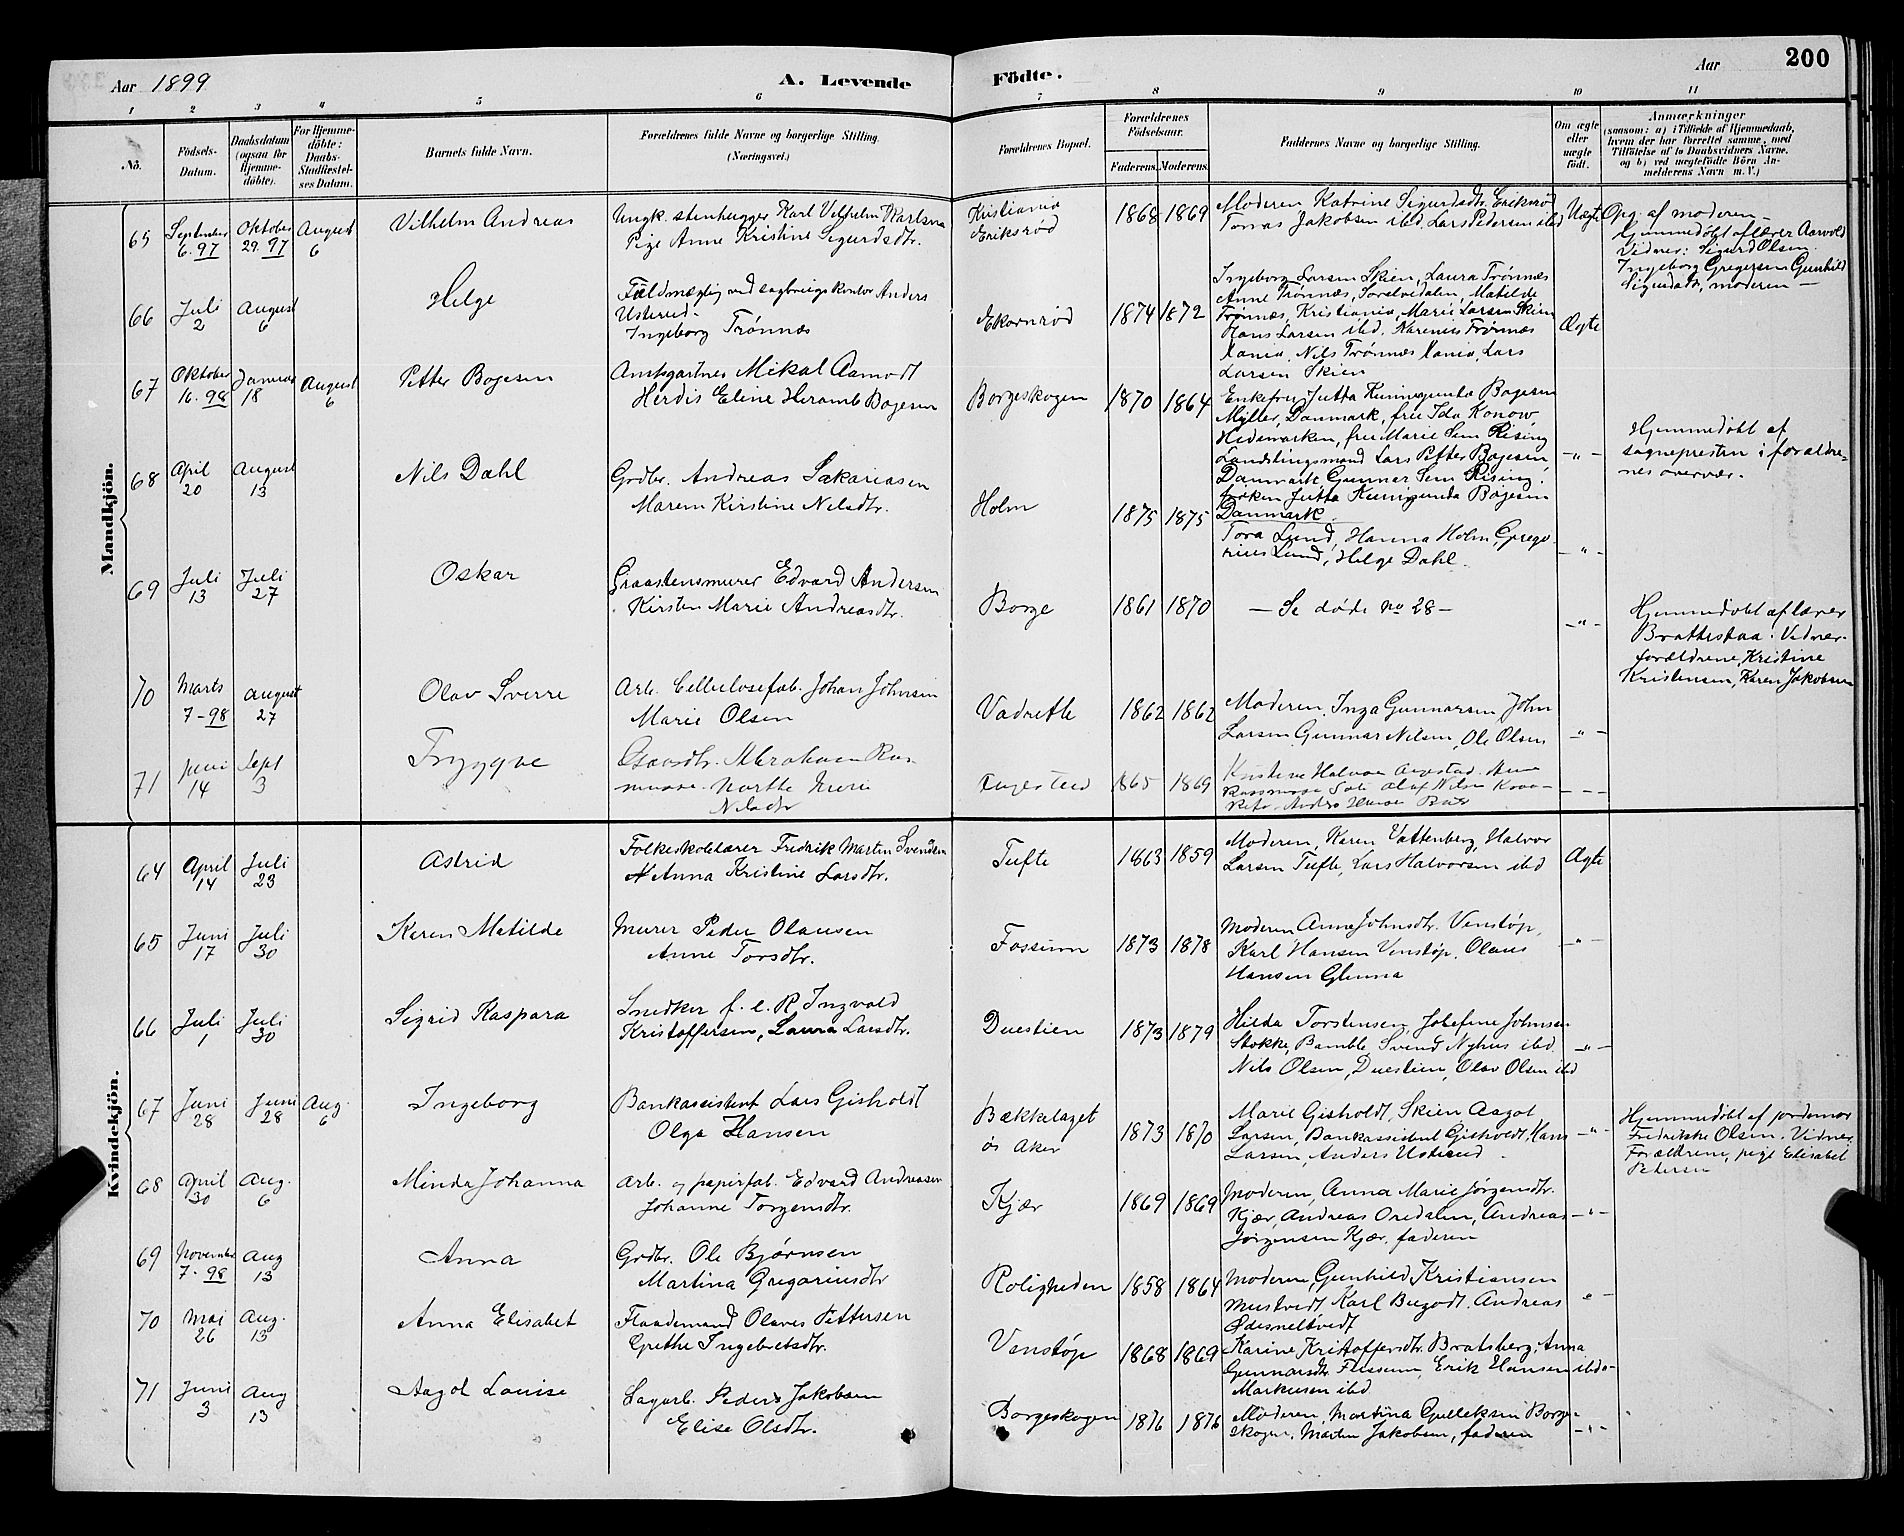 Aar 1899
A. Levende
Födte.
Aar
200
1 2 3 4 5 6 7 8 9 10 11
No.
Födsels-Datum.
Daabsdatum (ogsaa för Hjemmedöbte).
For Hjemmedöbte: Daabs-Stadfæstelses Datum.
Barnets fulde Navn.
Forældrenes fulde Navne og borgerlige Stilling. (Næringsvei.)
Forældrenes Bopæl.
Forældrenes Födselsaar.
Faderens. Moderens.
Faddernes Navne og borgerlige Stilling.
Om ægte eller uægte födt.
Anmærkninger
(saasom: a) i Tilfælde af Hjemmedaab, hvem der har forrettet samme, med Tilföielse af to Daabsvidners Navne, og b) ved uægtefödte Börn Anmelderens Navn m. V.)
Mandkjön.
65 September 6. 97 Oktober 29. 97 August 6
Vilhelm Andreas
Ungk. stenhugger Karl Vilhelm Karlsen
Pige Anne Kristine Sigurdsdtr.
Kristiania
Eriksrød
1868 1869
Moderen Katrine Sigurdsdtr. Eriksrød
Tomas Jakobsen ibd. Lars Pedersen ibd
Uægte
Opg. af moderen –
Hjemmedøbt af lærer Aarvold
Vidner: Sigurd Olsen
Ingeborg Gregersen Gunhild
Sigurdsdtr, moderen –
66 Juli 2 August 6
Helge
Fuldmægtig ved sagbrugskontor Anders
Usterud
Ingeborg Trønnæs
Ekornrød
1874 1872
Ingeborg Larsen Skien, Laura Trønnæs
Anne Trønnæs, Sørelvdalen, Matilde
Trønnæs, Kristiania, Marie Larsen Skien
Hans Larsen ibd. Karenius Trønnæs
Xania, Nils Trønnæs Xania, Lars
Larsen Skien
Ægte
67 Oktober 16. 98 Januar 18 August 6
Petter Bojesen
Amtsgartner Mikal Aamodt
Herdis Eline Heramb Bojesen
Borgeskogen
1870 1864
Enkefru Jutta Kunigunda Bojesen
Myller, Danmark, frue Ida Konow
Hedemarken, frue Marie Sem Rising
Landstingsmand Lars Petter Bojesen,
Danmark Gunnar Sem Rising.
frøken Jutta Kunigunda Bojesen
Danmark
– " –
Hjemmedøbt af
sognepresten i forældre-
nes overvær.
68 April 20 August 13
Nils Dahl
Grdbr. Andreas Sakariasen
Maren Kirstine Nilsdtr.
Holm
1875 1875
Tora Lund, Hanna Holm, Grego-
rius Lund, Helge Dahl.
– " –
69 Juli 13 Juli 27
Oskar
Graastensmurer Edvard Andersen
Kirsten Marie Andreasdtr.
Borge
1861 1870
– Se døde no 28 –
– " –
Hjemmedøbt af lærer
Brattestaa. Vidner.
forældrene, Kristine
Kristensen, Karen Jakobsen
70 Marts 7 – 98 august 27
Olav Sverre
Arb. Cellulosefab. Johan Johnsen
Marie Olsen
Vadrette
1862 1862
Moderen, Inga Gunnarsen John
Larsen Gunnar Nilsen, Ole Olsen
– " –
71 juni 14 Sept 3
Tryggve
Gaardbr. Abraham Ras-
musse. Marthe Marie
Nilsdtr
1865 1869
– – –
Kvindekjön.
64 April 14 Juli 23
Astrid
Folkeskolelærer Fredrik Martin Svendsen
Anna Kristine Larsdtr.
Tufte
1863 1859
Moderen, Karen Vattenberg, Halvor
Larsen Tufte, Lars Halvorsen ibd
Ægte
65 Juni 17 Juli 30
Karen Matilde
Murer Peder Olausen
Anne Torsdtr.
Fossum
1873 1878
Moderen Anne Johnsdtr. Venstøp,
Karl Hansen Venstøp, Olaus
Hansen Glenna
– " –
66 Juli 1 Juli 30
Sigrid Kaspara
Snedker f. e. R. Ingvald
Kristoffersen, Laura Larsdtr.
Duestien
1873 1879
Hilda Torstensen, Josefine Johnsen
Stokke, Bamble Svend Nyhus ibd.
Nils Olsen, Duestien, Olav Olsen ibd
– " –
67 Juni 28 Juni 28 Aug. 6
Ingeborg
Bankassistent Lars Gisholdt
Olga Hansen
Bækkelaget
øs Aker
1873 1870
Marie Gisholdt, Skien Aagot
Larsen, Bankassistent Gisholdt, Hans
Larsen, Anders Usterud.
– " –
Hjemmedøbt af jordemor
Fredrikke Olsen. Vidner.
Forældrene, pige Elisabet
Pedersen
68 April 30 Aug. 6
Minda Johanna
Arb. og papirfab. Edvard Andreasen
Johanne Torgensdtr.
Kjær
1869 1869
Moderen, Anna Marie Jørgensdtr.
Kjær, Andreas Oredalen, Andreas
Jørgensen Kjær, faderen
– " –
69 November 7. 98 Aug 13
Anna
Grdbr. Ole Bjørnsen
Martina Gregoriusdtr
Roligheden
1858 1864
Moderen, Gunhild Kristiansen
Mustvedt Karl Bugodt. Andreas
Ødesneltvedt
" –
70 Mai 26 Aug. 13
Anna Elisabet
Flaademand Olaves Pettersen
Grethe Ingebretsdtr.
Venstøp
1868 1869
Karine Kristoffersdtr. Bratsberg, Anna
Gunnarsdtr Fossum, Erik Hansen ibd
Markusen ibd
71 Juni 3 Aug 13
Aagot Louise
Sagarb. Peder Jakobsen
Elise Olsdtr.
Borgeskogen
1876 1876
Moderen, Martina Gulleksen Borge-
skogen, Martin Jakobsen, faderen
– " –